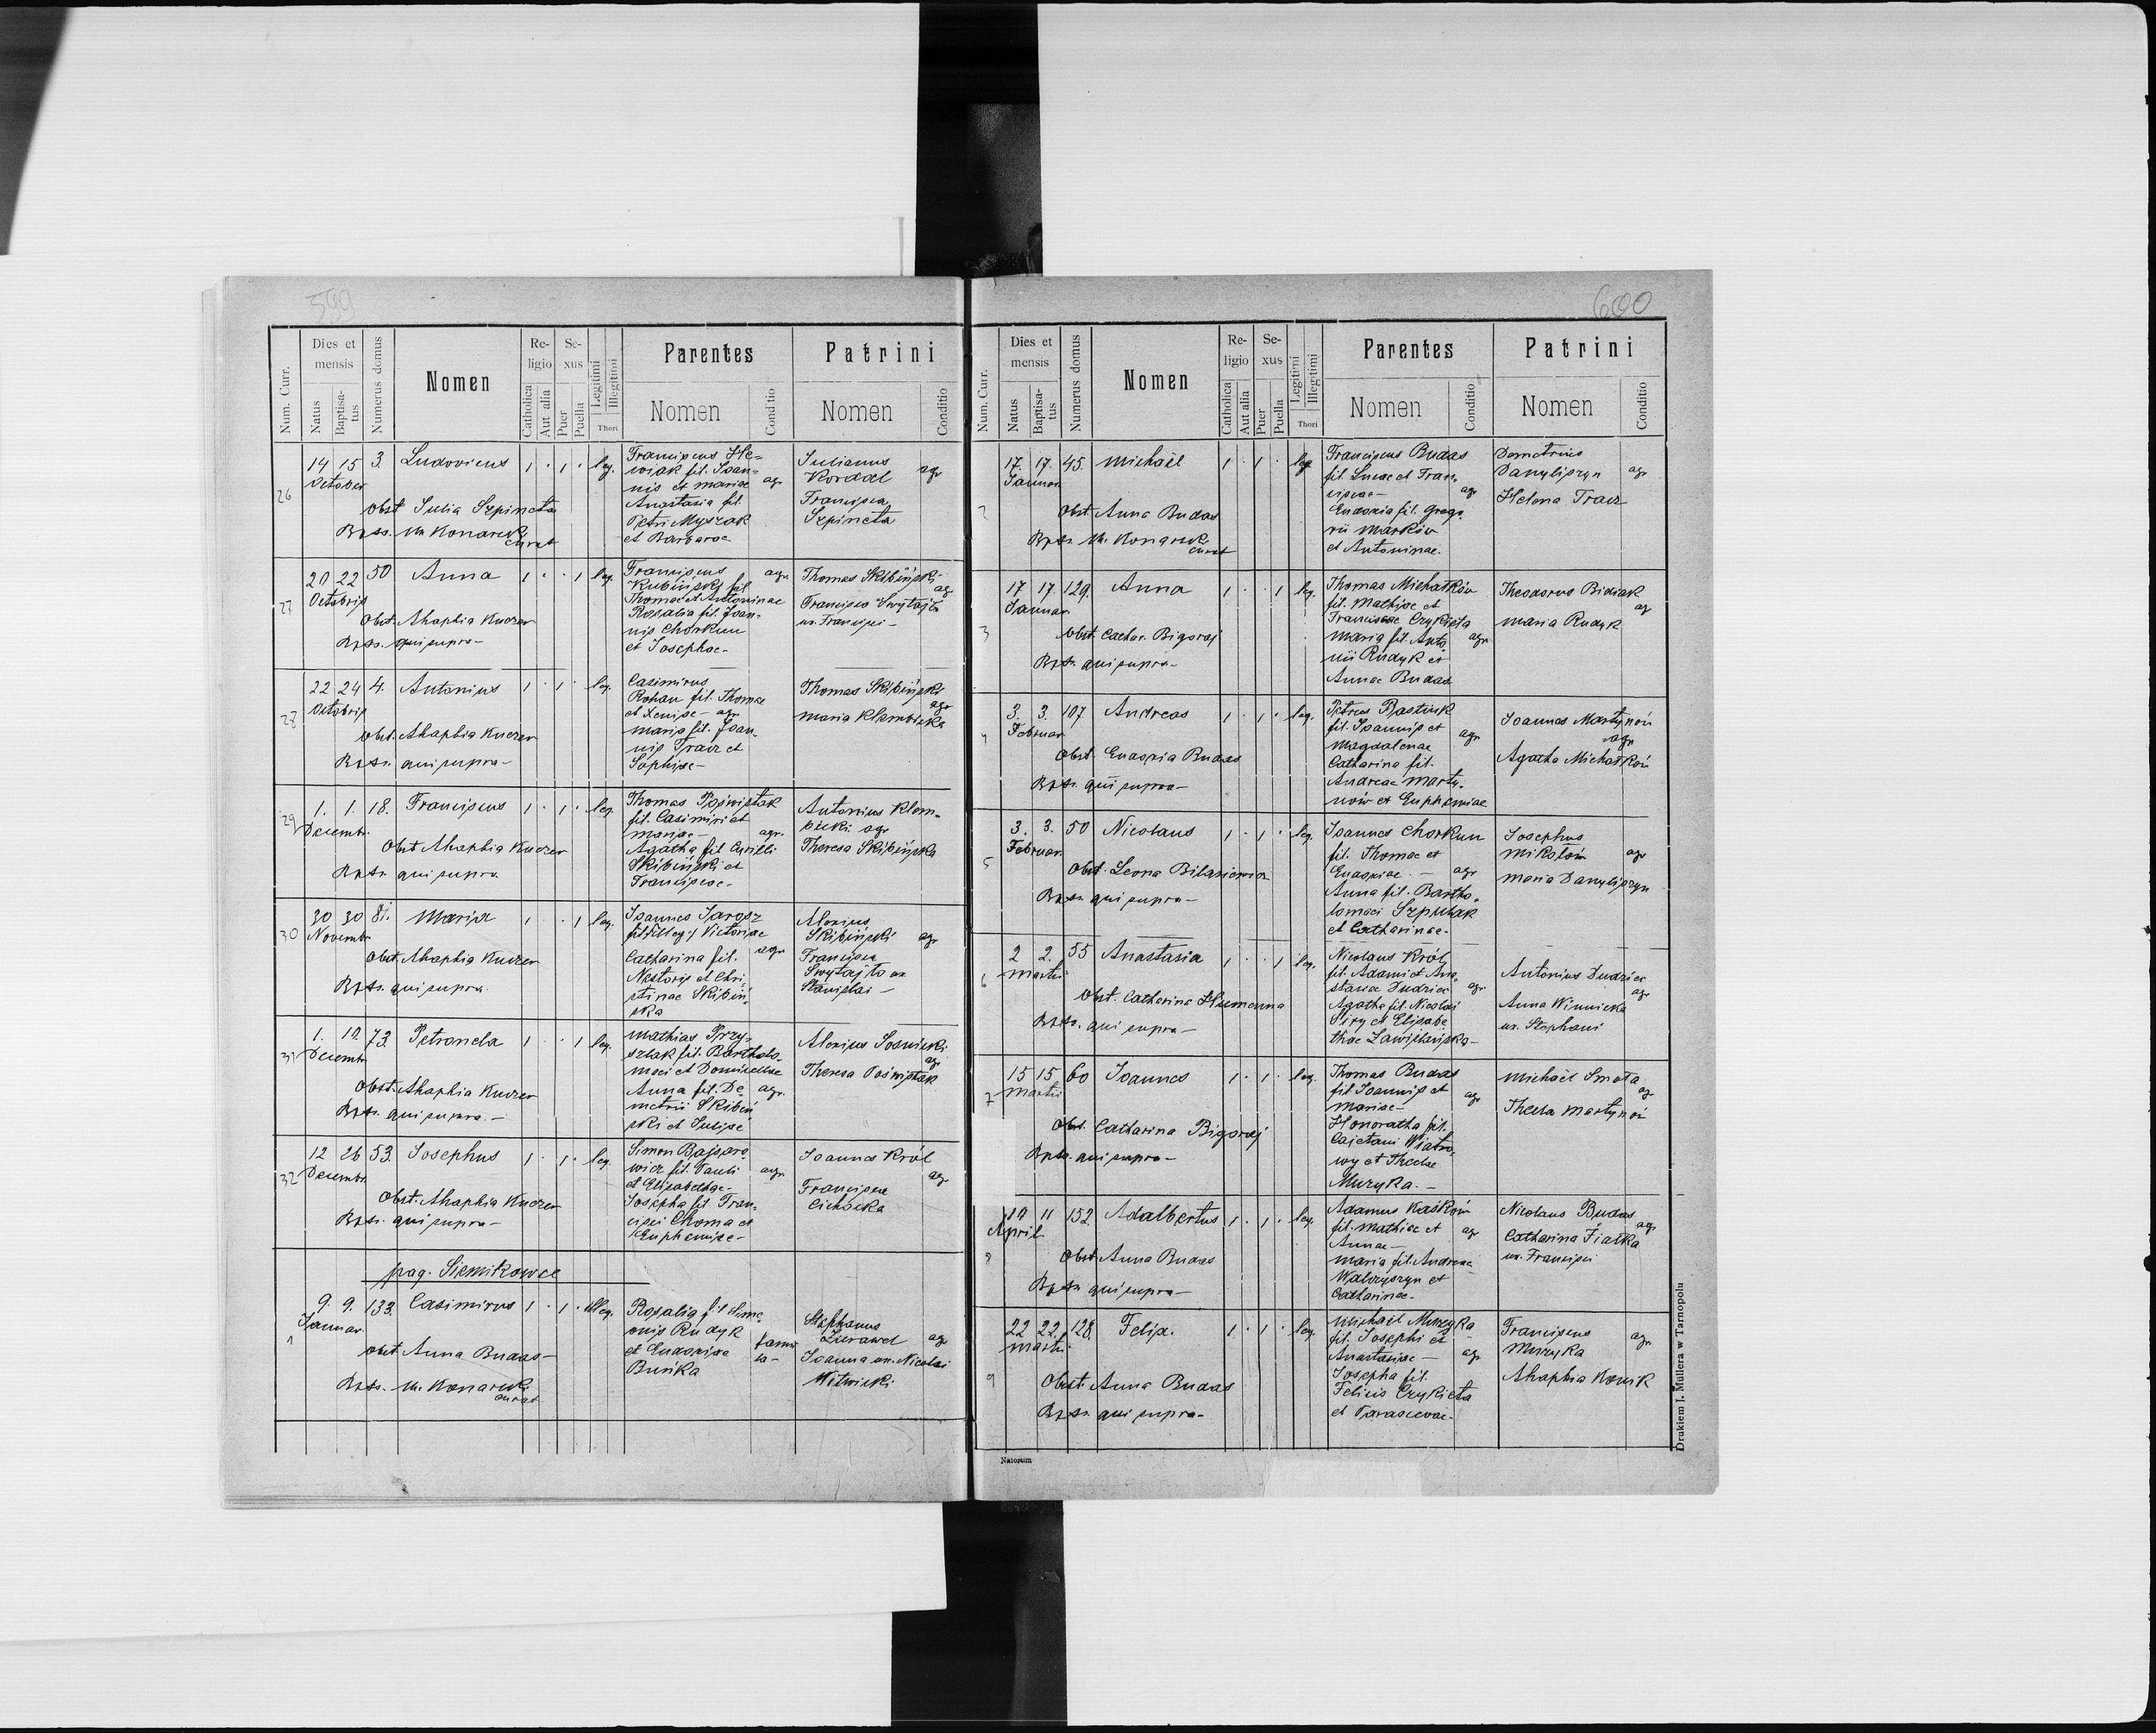 599
Num. Curr. Dies et mensis Natus Baptisatus Numerus domus Nomen Religio Catholica Aut alia Sexus Puer Puella Legitimi Illegitimi Thori Parentes Nomen Conditio Patrini Nomen Conditio
26 14 15 October 3. Ludovicus 1 · 1 · leg.
Obst. Julia Szpineta
Bpts. M. Konarski curat
Franciscus
fil. Joannis et Mariae agr
Anastasia fil.
Petri Myszak
et Barbarae
Julianus
Kordal agr
Francisca
Szpineta
27 20 22 Octobris 50 Anna 1 · · 1 leg.
Obst. Ahaphia Kuczer
Bpts. qui supra-
Franciscus agr
Kubiński fil
Thomae et Antoninae
Rosalia fil. Joannis Chorkun
et Josephae-
Thomas Skibiński agr
Francisca Swytajło
ux. Francisci-
28 22 24 Octobris 4. Antonius 1 · 1 · leg.
Obst. Ahaphia Kuczer
Bpts. qui supra-
Casimirus
Rohan fil. Thomae
et Xeniae- agr
Maria fil. Joannis Tracz et
Sophiae-
Thomas Skibiński agr
Maria Klembicka
29 1. 1. Decembr. 18. Franciscus 1 · 1 · leg.
Obst Ahaphia Kuczer
Bpts. qui supra
Thomas Poświstak
fil. Casimiri et
Mariae- agr.
Agatha fil Cyrilli
Skibiński et
Franciscae-
Antonius Klembicki agr
Theresa Skibińska
30 30 30 Novembr 81. Maria 1 · · 1 leg.
Obst. Ahaphia Kuczer
Bpts. qui supra.
Joannes Jarosz
fil. illeg. Victoriae
Catharina fil. agr
Nestoris et Christinae Skibińska
Alexius
Skibiński agr
Francisca
Swytajło ux
Stanislai-
31 1. 10. Decembr 73. Petronela 1 · · 1 leg.
Obst. Ahaphia Kuczer
Bpts. qui supra.-
Mathias Przyszlak fil. Bartholomaei et Domicellae
Anna fil. Demetrii Skibiński et Juliae agr.
Alexius Sosnicki agr
Theresa Poświstak
32 12 26 Decembr 53. Josephus 1 · 1 · leg.
Obst. Ahaphia Kuczer
Bpts. qui supra-
Simon
fil. Pauli agr
et Elisabethae-
Josepha fil. Francisci Choma et
Euphemiae-
Joannes Król agr
Francisca
Cichocka
pag. Siemikowce
1 9. 9. Januar. 133. Casimirus 1 · 1 · illeg.
Obst. Anna Budas-
Bpts. M. Konarski curat
Rosalia fil Simeonis Rudyk
et Eudoxiae famula-
Buńka
Stephanus
Żurawel agr
Joanna ux. Nicolai
Witwicki
600
Num. Curr. Dies et mensis Natus Baptisatus Numerus domus Nomen Religio Catholica Aut alia Sexus Puer Puella Legitimi Illegitimi Thori Parentes Nomen Conditio Patrini Nomen Conditio
2 17. 17. Januar. 45. Michaël 1 · 1 · leg
Obst. Anna Budas
Bpts. M. Konarski curat
Franciscus Budas
fil. Lucae et Franciscae- agr
Eudoxia fil. Gregorii Marków
et Antoninae.
Demetrius
Danyliszyn agr
Helena Tracz
3 17 17 Januar. 129. Anna 1 · · 1 leg.
Obst. Cathar. Bigoraj
Bpts. qui supra-
Thomas Michałków
fil. Mathiae et
Franciscae Czykieta
Maria fil. Antonii Rudyk et agr
Annae Budas
Theodorus Bidiak agr
Maria Rudyk
4 3. 3. Februar. 107. Andreas 1 · 1 · leg.
Obst. Eudoxia Budas
Bpts. qui supra-
Petrus Bastiuk
fil. Joannis et agr
Magdalenae
Catharina fil.
Andreae Martynów et Euphemiae
Joannes Martynów agr
Agatha Michałków
5 3. 3. Februar. 50 Nicolaus 1 · 1 · leg.
Obst. Leona Bilasiewicz
Bpts. qui supra-
Joannes Chorkun
fil. Thomae et
Eudoxiae.- agr
Anna fil. Bartholomaei
et Catharinae.
Josephus
Mikołów agr
Maria Danyliszyn
6 2 2. Martii 55 Anastasia 1 · · 1 leg.
Obst. Catharina Humenna
Bpts. qui supra-
Nicolaus Król
fil. Adami et Anastasiae Dudzicz agr
Agatha fil. Nicolai
Siry et Elisabethae Zawiślańska-
Antonius Dudzicz agr
Anna Winnicka
ux. Stephani
7 15 15 Martii 60 Joannes 1 · 1 · leg.
Obst. Catharina Bigoraj
Bpts. qui supra-
Thomas Budas
fil Joannis et agr
Mariae-
Honoratha fil.
Cajetani Wiatrowy et Theclae
Muzyka.-
Michaël Smola agr
Thecla Martynów
8 10 11 April. 152. Adalbertus 1 · 1 · leg.
Obst. Anna Budas
Bpts. qui supra-
Adamus Kaśków
fil. Mathiae et agr
Annae-
Maria fil. Andreae
Walczyszyn et
Catharinae.-
Nicolaus Budas agr
Catharina Fiałka
ux. Francisci
9 22 22. Martii 128. Felix. 1 · 1 · leg.
Obst Anna Budas
Bpts. qui supra-
Michaël Muzyka
fil. Josephi et
Anastasiae- agr
Josepha fil.
Felicis Czykieta
et Parascevae-
Franciscus agr
Muzyka
Ahaphia Kowik
Natorum
Drukiem J. Mullera w Tarnopolu